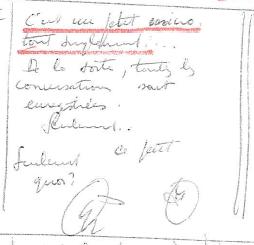 C'est un petit
tout simplement...
De la sorte, toutes les
conversations sont
enregistrées.
Seulement..
Seulement ce petit
quoi?